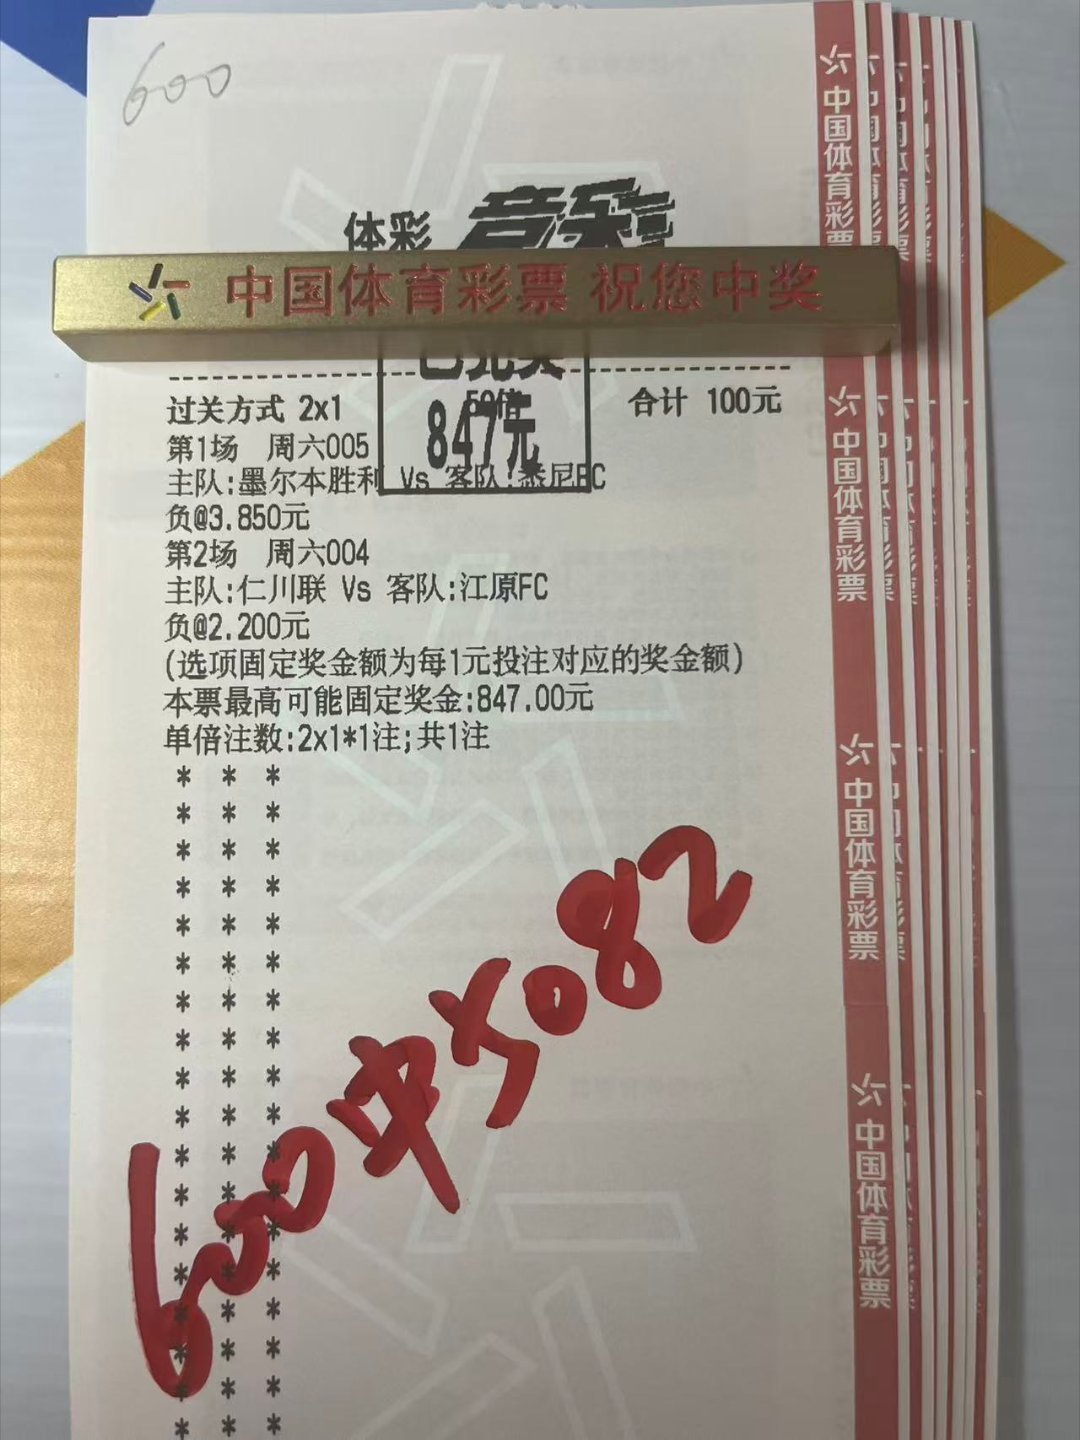 600
体彩 竞彩
中国体育彩票 祝您中奖
过关方式 2x1 50倍 合计 100元
847元
第1场 周六005
主队:墨尔本胜利 Vs 客队:悉尼FC
负@3.850元
第2场 周六004
主队:仁川联 Vs 客队:江原FC
负@2.200元
(选项固定奖金额为每1元投注对应的奖金额)
本票最高可能固定奖金:847.00元
单倍注数:2x1*1注;共1注
600中5082
中国体育彩票
中国体育彩票
中国体育彩票
中国体育彩票